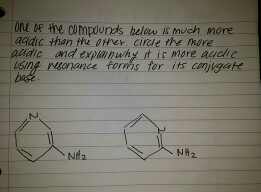 One of the compounds below is much more
acidic than the other. circle the more
acidic and explain why it is more acidic
using resonance forms for its conjugate
base.
N
N
NH2
NH2